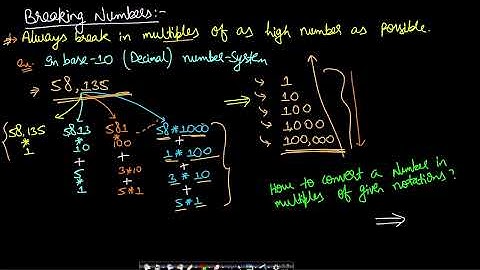 Breaking Numbers:-
Always break in multiples of as high number as possible.
Ex. In base-10 (Decimal) number-system
58,135
58,135
*
1
5813
*
10
+
5
*
1
581
*
100
+
3*10
+
5*1
58*1000
+
1*100
+
3*10
+
5*1
1
10
100
1000
100,000
How to convert a Number in
multiples of given notations?